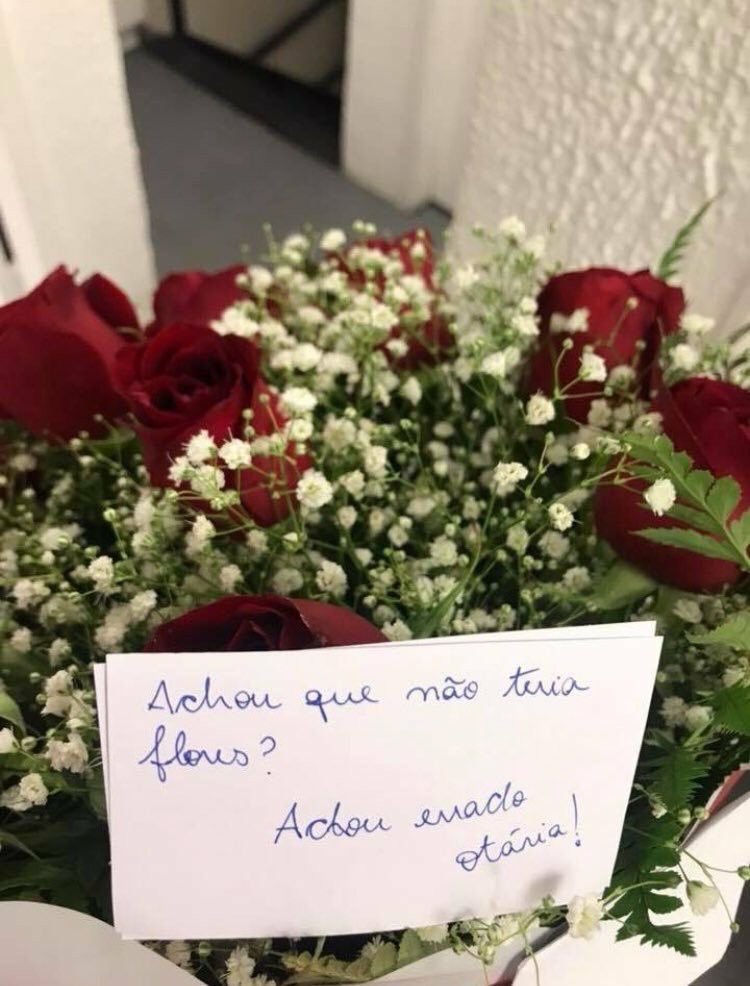 Achou que não teria
flores?
Achou errado
otária!